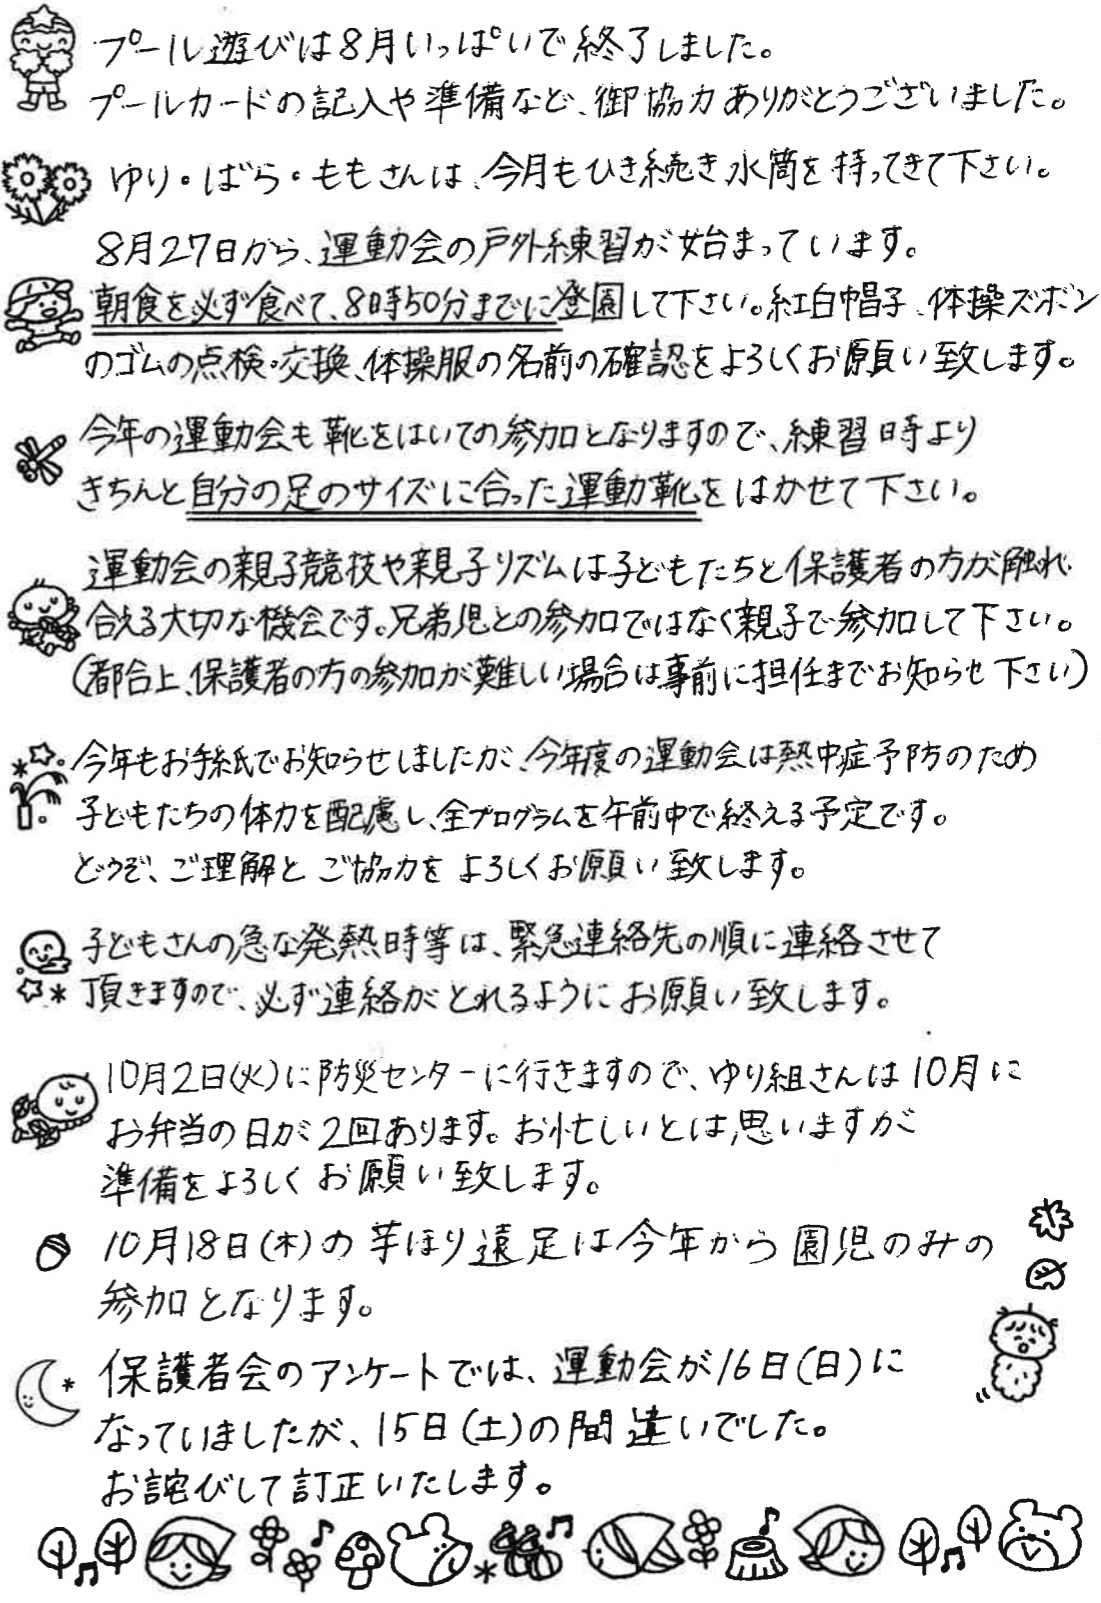 プール遊びは8月いっぱいで終了しました。
プールカードの記入や準備など、御協力ありがとうございました。
ゆり・ばら・ももさんは、今月もひき続き水筒を持ってきて下さい。
8月27日から、運動会の戸外練習が始まっています。
朝食を必ず食べて、8時50分までに登園して下さい。紅白帽子、体操ズボン
のゴムの点検・交換、体操服の名前の確認をよろしくお願い致します。
今年の運動会も靴をはいての参加となりますので、練習時より
きちんと自分の足のサイズに合った運動靴をはかせて下さい。
運動会の親子競技や親子リズムは子どもたちと保護者の方が触れ
合える大切な機会です。兄弟児との参加ではなく親子で参加して下さい。
(都合上、保護者の方の参加が難しい場合は事前に担任までお知らせ下さい)
今年もお手紙でお知らせしましたが、今年度の運動会は熱中症予防のため
子どもたちの体力を配慮し、全プログラムを午前中で終える予定です。
どうぞ、ご理解とご協力をよろしくお願い致します。
子どもさんの急な発熱時等は、緊急連絡先の順に連絡させて
頂きますので、必ず連絡がとれるようにお願い致します。
10月2日(火)に防災センターに行きますので、ゆり組さんは10月に
お弁当の日が2回あります。お忙しいとは思いますが
準備をよろしくお願い致します。
10月18日(木)の芋ほり遠足は今年から園児のみの
参加となります。
保護者会のアンケートでは、運動会が16日(日)に
なっていましたが、15日(土)の間違いでした。
お詫びして訂正いたします。